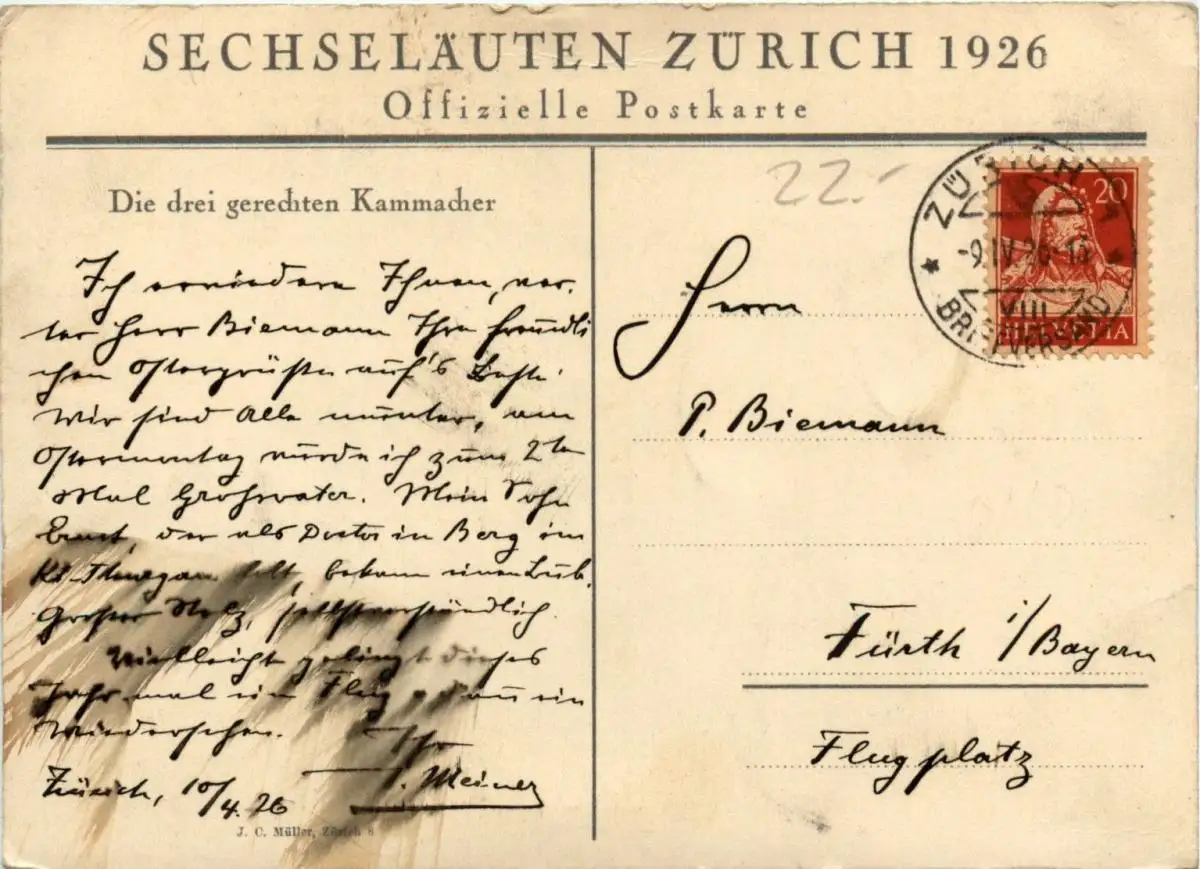 SECHSELÄUTEN ZÜRICH 1926
Offizielle Postkarte
Die drei gerechten Kammacher
Ich erwiedere Ihnen, wer-
ter Herr Biemann Ihre freundli
chen Ostergrüße auf's Beste.
Wir sind Alle munter, am
Ostermontag wurde ich zum 2ten
Mal Großvater. Mein Sohn
Ernst, der als Doctor in Berg im
Kt. Thurgau lebt, bekam einen Bub.
Großer Stolz, selbstverständlich.
Vielleicht gelingt dieses
Jahr mal ein Flug und ein
Wiedersehen. Ihr
Meiner
Zürich, 10/4.26
J. C. Müller, Zürich 8
22.-
ZÜRICH
-9.IV.26-13
VIII
BRIEFVERSAND
20
HELVETIA
Herrn
P. Biemann
Fürth i/Bayern
Flugplatz